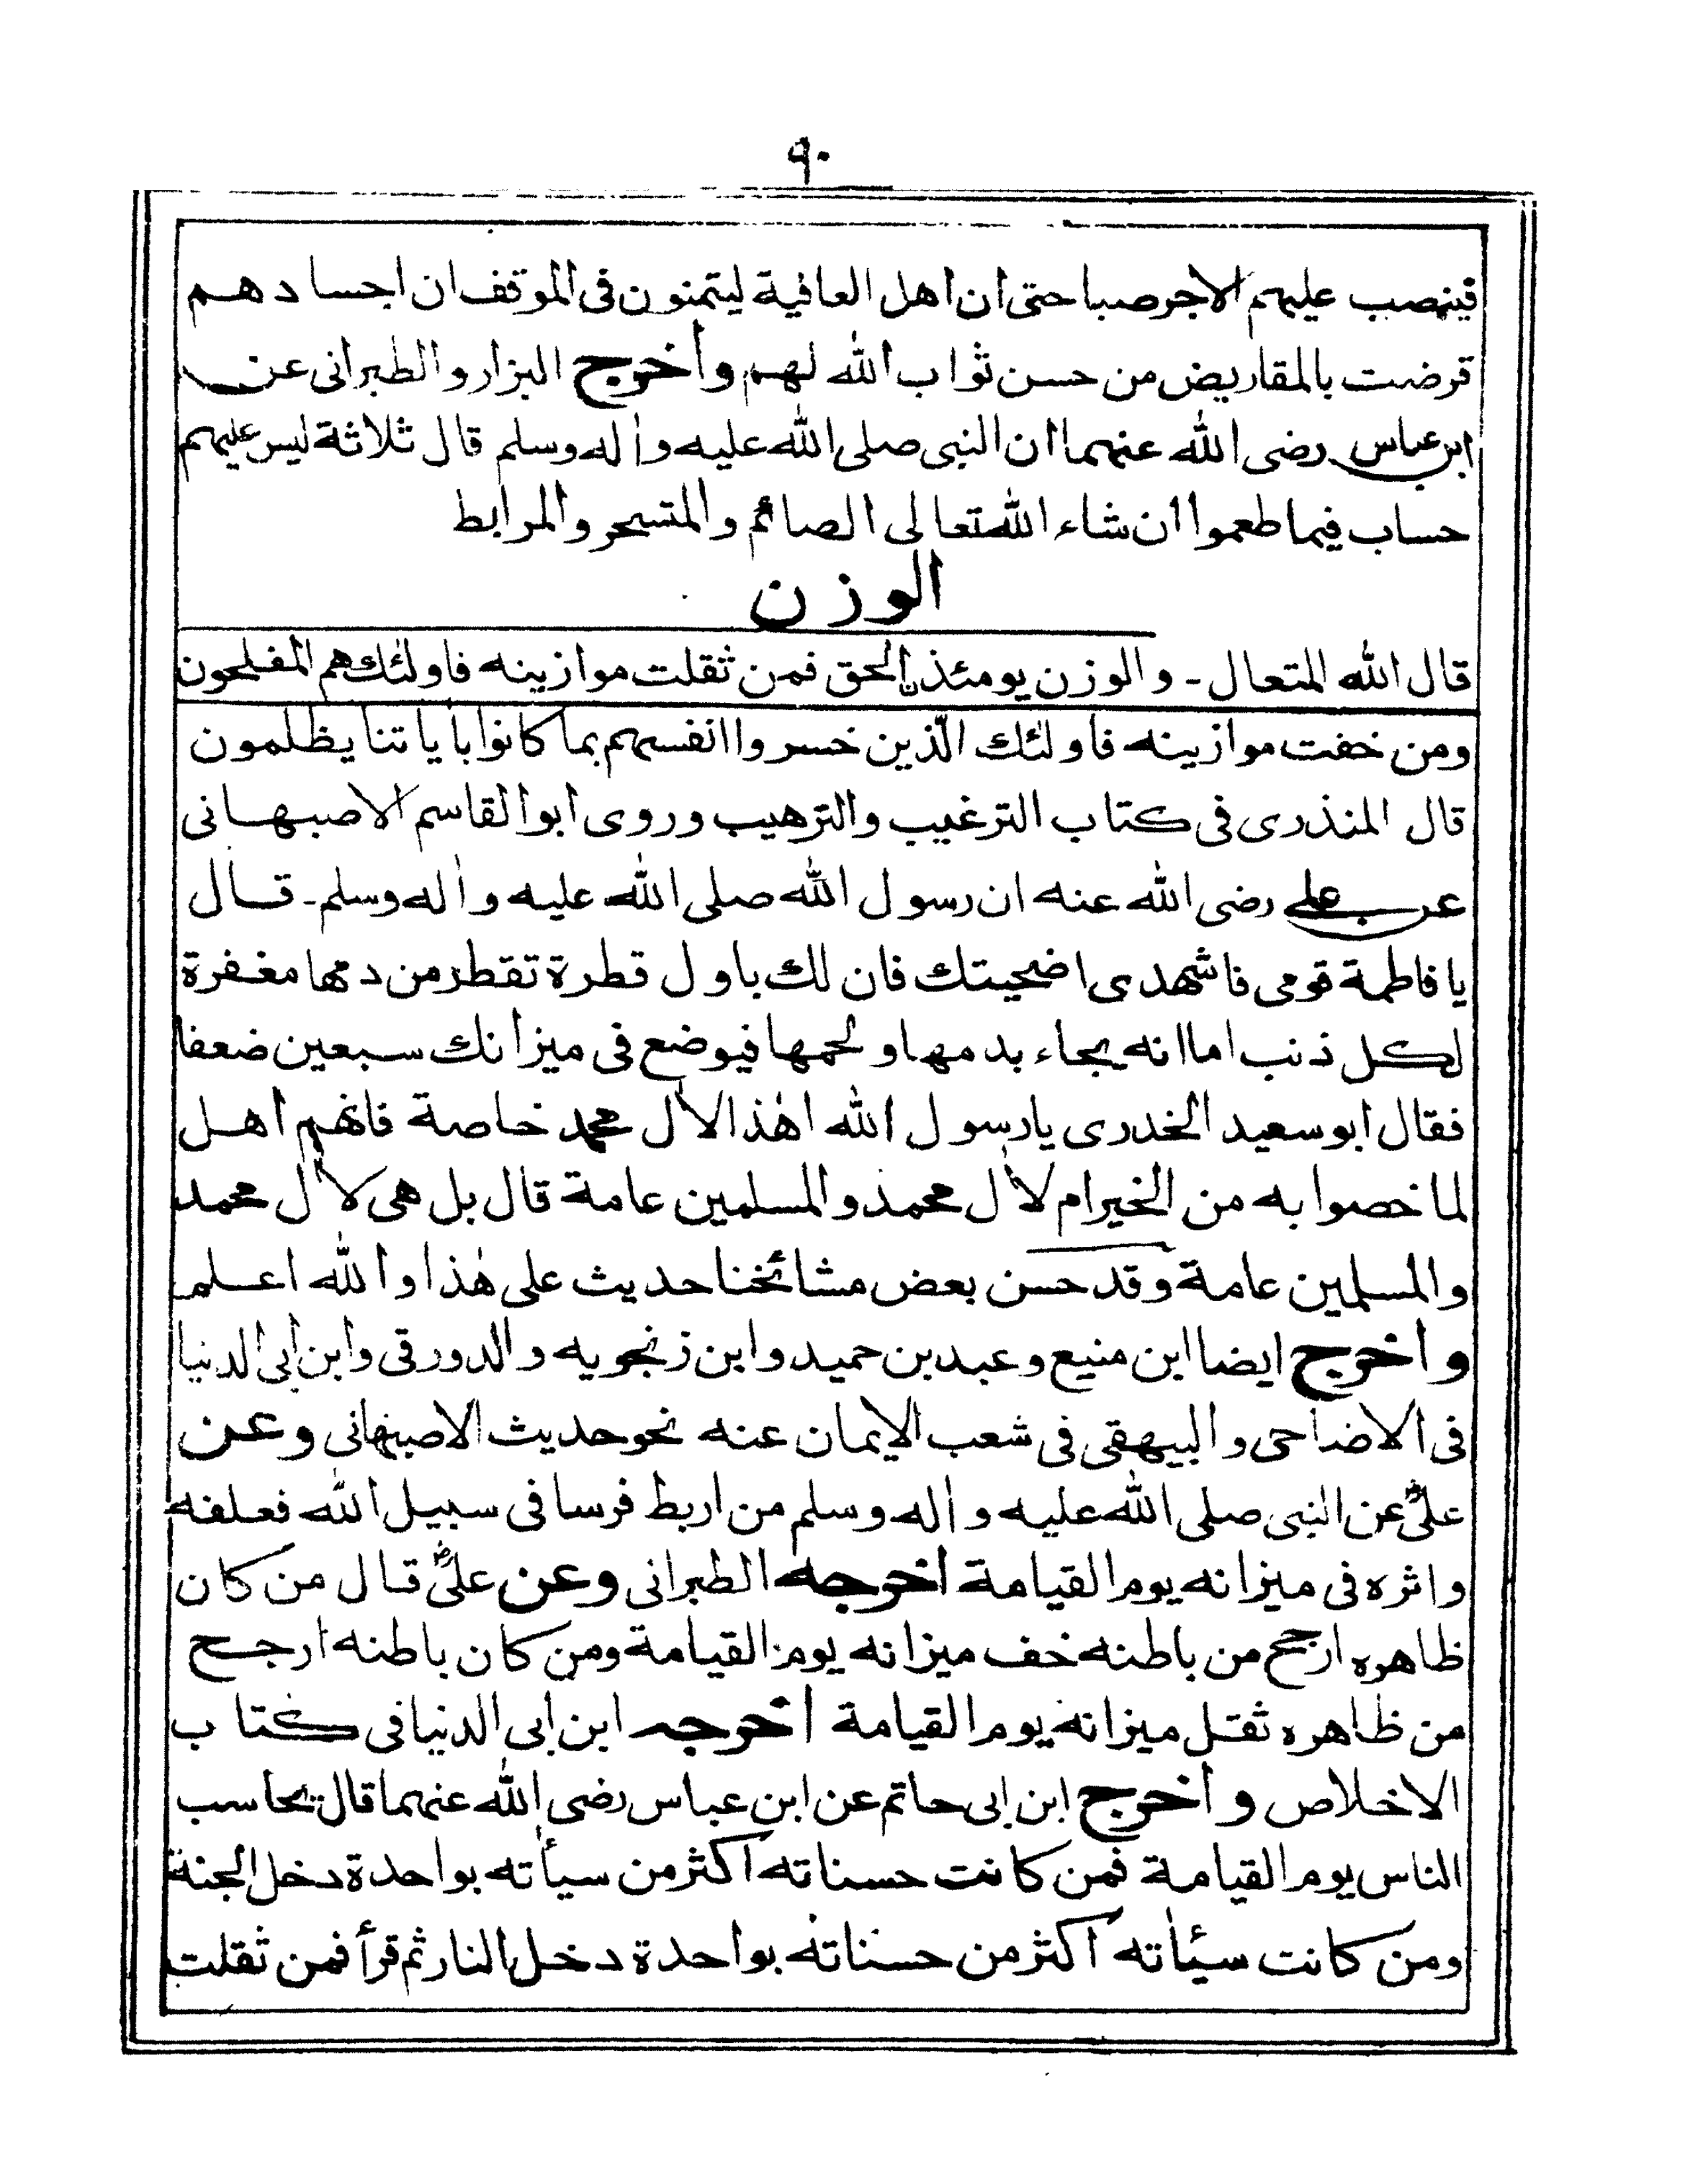 ٩٠
فينصب عليهم الاجر صبا حتى ان اهل العافية ليتمنون فى الموقف ان اجسادهم
قرضت بالمقاريض من حسن ثواب الله لهم وأخرج البزار والطبرانى عن
ابن عباس رضى الله عنهما ان النبى صلى الله عليه واٰله وسلم قال ثلاثة ليس عليهم
حساب فيما طعموا ان شاء الله تعالى الصائم والمتسحر والمرابط
الوزن
قال الله المتعال - والوزن يومئذ الحق فمن ثقلت موازينه فاولئك هم المفلحون
ومن خفت موازينه فاولئك الّذين خسروا انفسهم بما كانوا بأياتنا يظلمون
قال المنذرى فى كتاب الترغيب والترهيب وروى ابو القاسم الاصبهانى
عن على رضى الله عنه ان رسول الله صلى الله عليه واٰله وسلم - قال
يا فاطمة قومى فاشهدى اضحيتك فان لك باول قطرة تقطر من دمها مغفرة
لكل ذنب اما انه يجاء بدمها ولحمها فيوضع فى ميزانك سبعين ضعفا
فقال ابو سعيد الخدرى يا رسول الله اهٰذا لاٰل محمد خاصة فانهم اهل
لما خصوا به من الخير ام لاٰل محمد والمسلمين عامة قال بل هى لاٰل محمد
والمسلمين عامة وقد حسن بعض مشائخنا حديث على هٰذا والله اعلم
وأخرج ايضا ابن منيع وعبد بن حميد وابن زنجويه والدورقى وابن ابى الدنيا
فى الاضاحى والبيهقى فى شعب الايمان عنه نحو حديث الاصبهانى وعن
علىؓ عن النبى صلى الله عليه واٰله وسلم من اربط فرسا فى سبيل الله فعلفه
واثره فى ميزانه يوم القيامة أخرجه الطبرانى وعن علىؓ قال من كان
ظاهره ارجح من باطنه خف ميزانه يوم القيامة ومن كان باطنه ارجح
من ظاهره ثقل ميزانه يوم القيامة أخرجه ابن ابى الدنيا فى كتاب
الاخلاص وأخرج ابن ابى حاتم عن ابن عباس رضى الله عنهما قال يحاسب
الناس يوم القيامة فمن كانت حسناته اكثر من سيأته بواحدة دخل الجنة
ومن كانت سيئأته اكثر من حسناته بواحدة دخل النار ثم قرأ فمن ثقلت